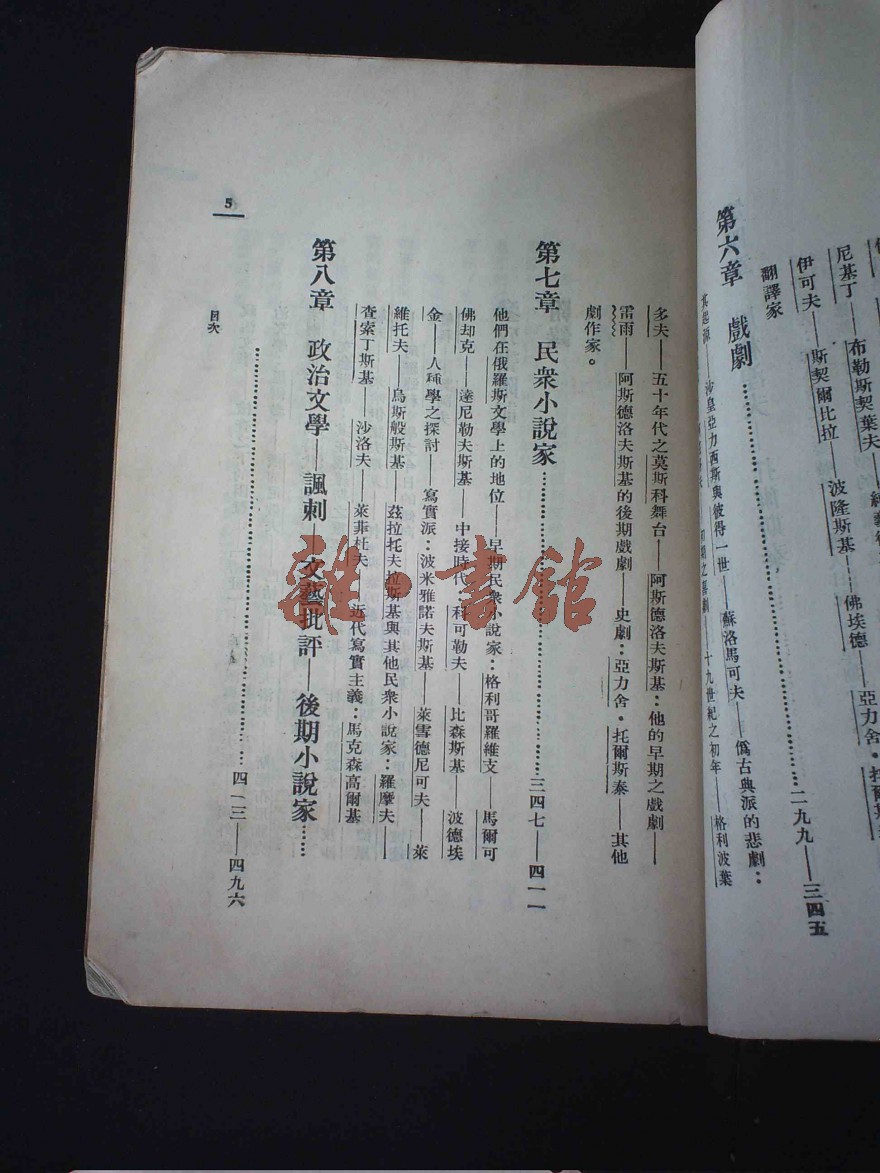 尼基丁——布勒斯契葉夫——
伊可夫——斯契爾比拉——波隆斯基——佛埃德——亞力舍・托爾斯
翻譯家
第六章 戲劇……二九九——三四五
其起源——沙皇亞力西斯與彼得一世——蘇洛馬可夫——僞古典派的悲劇：
初期之喜劇——十九世紀之初年——格利波葉
多夫——五十年代之莫斯科舞台——阿斯德洛夫斯基：他的早期之戲劇——
雷雨——阿斯德洛夫斯基的後期戲劇——史劇：亞力舍・托爾斯泰——其他
劇作家。
第七章 民衆小說家……三四七——四一一
他們在俄羅斯文學上的地位——早期民衆小說家：格利哥羅維支——馬爾可
佛却克——達尼勒夫斯基——中接時代：科可勒夫——比森斯基——波德埃
金——人種學之探討——寫實派：波米雅諾夫斯基——萊雪德尼可夫——萊
維托夫——烏斯般斯基——茲拉托夫拉斯基與其他民衆小說家：羅摩夫——
查索丁斯基——沙洛夫——萊菲杜夫——近代寫實主義：馬克森高爾基
第八章 政治文學——諷刺——文藝批評——後期小說家……
……四一三——四九六
目次
5
雜・書館